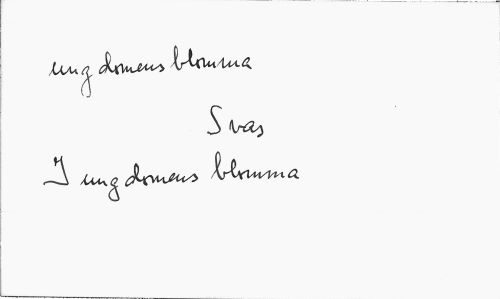 ungdomens blomma
Svas
I ungdomens blomma